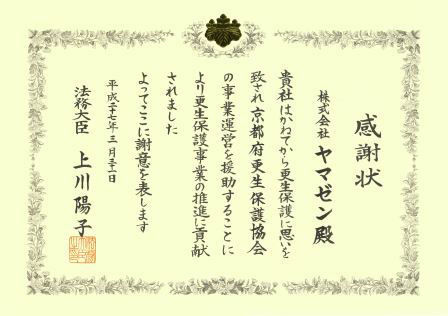 感謝状
株式会社 ヤマゼン 殿
貴社はかねてから更生保護に思いを
致され京都府更生保護協会
の事業運営を援助することに
より更生保護事業の推進に貢献
されました
よってここに謝意を表します
平成二十七年三月三十一日
法務大臣 上川陽子